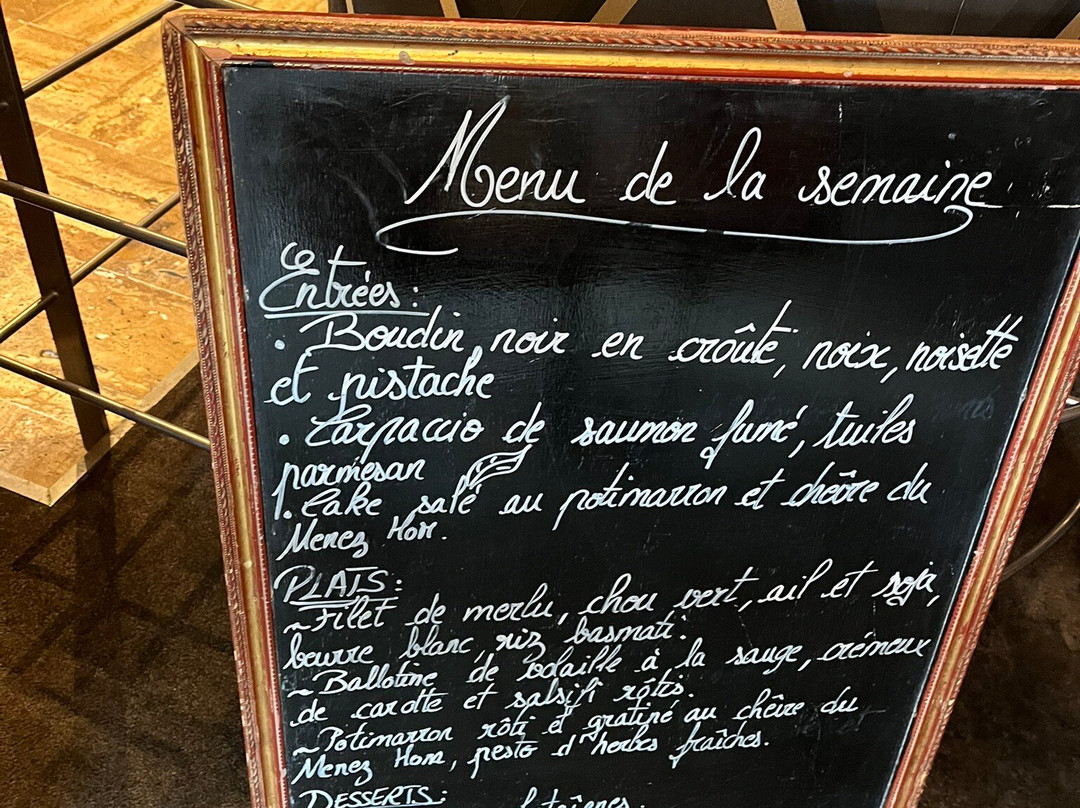 Menu de la semaine
Entrées :
. Boudin noir en croûte, noix, noisette
et pistache
. Carpaccio de saumon fumé, tuiles
parmesan
. Cake salé au potimarron et chèvre du
Menez Hom.
PLATS :
~ Filet de merlu, chou vert, ail et soja,
beurre blanc, riz basmati.
~ Ballotine de volaille à la sauge, crémeux
de carotte et salsifi rôtis.
~ Potimarron rôti et gratiné au chèvre du
Menez Hom, pesto d'herbes fraîches.
DESSERTS :